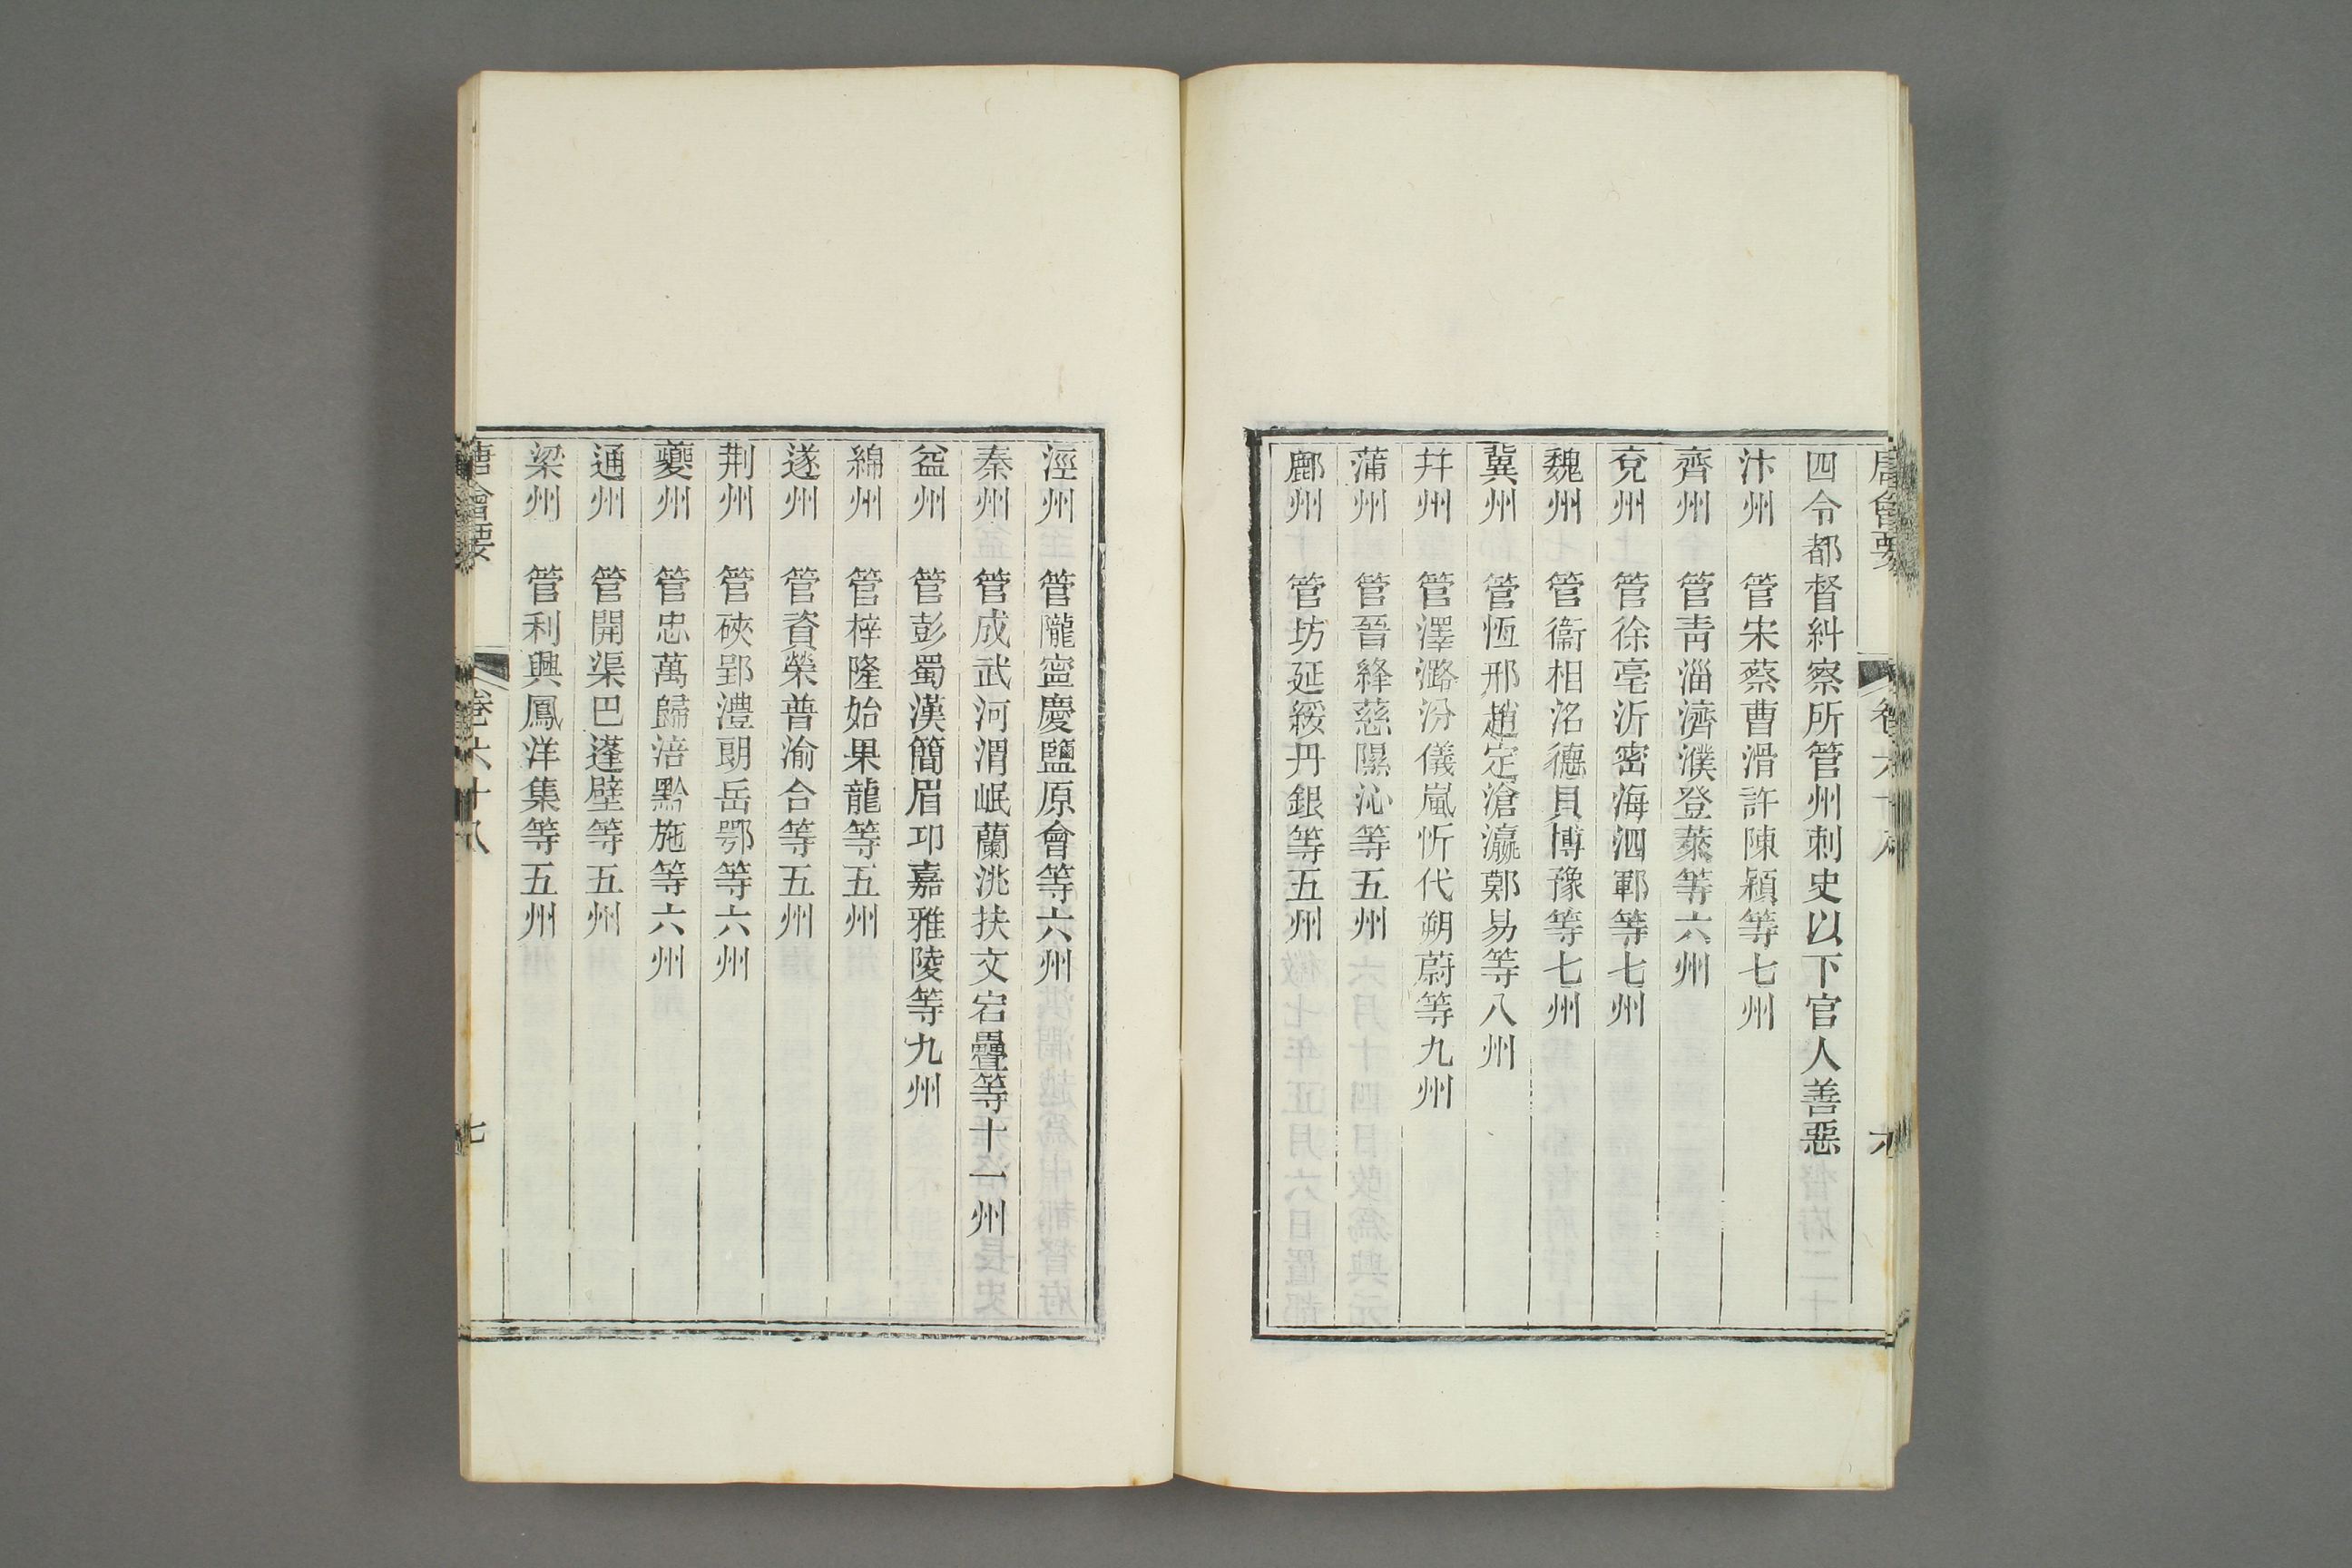 唐會要 卷六十八 六
四令都督糾察所管州刺史以下官人善惡
汴州 管宋蔡曹滑許陳潁等七州
齊州 管青淄濟濮登萊等六州
兗州 管徐亳沂密海泗鄆等七州
魏州 管衞相洺德貝博豫等七州
冀州 管恆邢趙定滄瀛鄭易等八州
幷州 管澤潞汾儀嵐忻代朔蔚等九州
蒲州 管晉絳慈隰沁等五州
鄜州 管坊延綏丹銀等五州
涇州 管隴寍慶鹽原會等六州
秦州 管成武河渭岷蘭洮扶文宕疊等十一州
益州 管彭蜀漢簡眉邛嘉雅陵等九州
綿州 管梓隆始果龍等五州
遂州 管資榮普渝合等五州
荆州 管硤郢澧朗岳鄂等六州
夔州 管忠萬歸涪黔施等六州
通州 管開渠巴蓬壁等五州
梁州 管利興鳳洋集等五州
唐會要 卷六十八 七